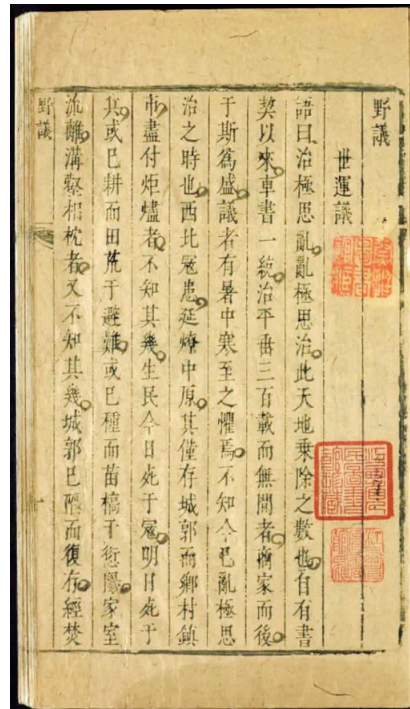 野議
世運議
語曰治極思亂亂極思治此天地乘除之數也自有書
契以來車書一統治平垂三百載而無間者商家而後
于斯為盛議者有暑中寒至之懼焉不知今已亂極思
治之時也西北寇患延燎中原其僅存城郭而鄉村鎮
市盡付炬燼者不知其幾生民今日死于寇明日死于
兵或已耕而田荒于避難或已種而苗槁于愆陽家室
流離溝壑相枕者又不知其幾城郭已陷而復存經焚
野議